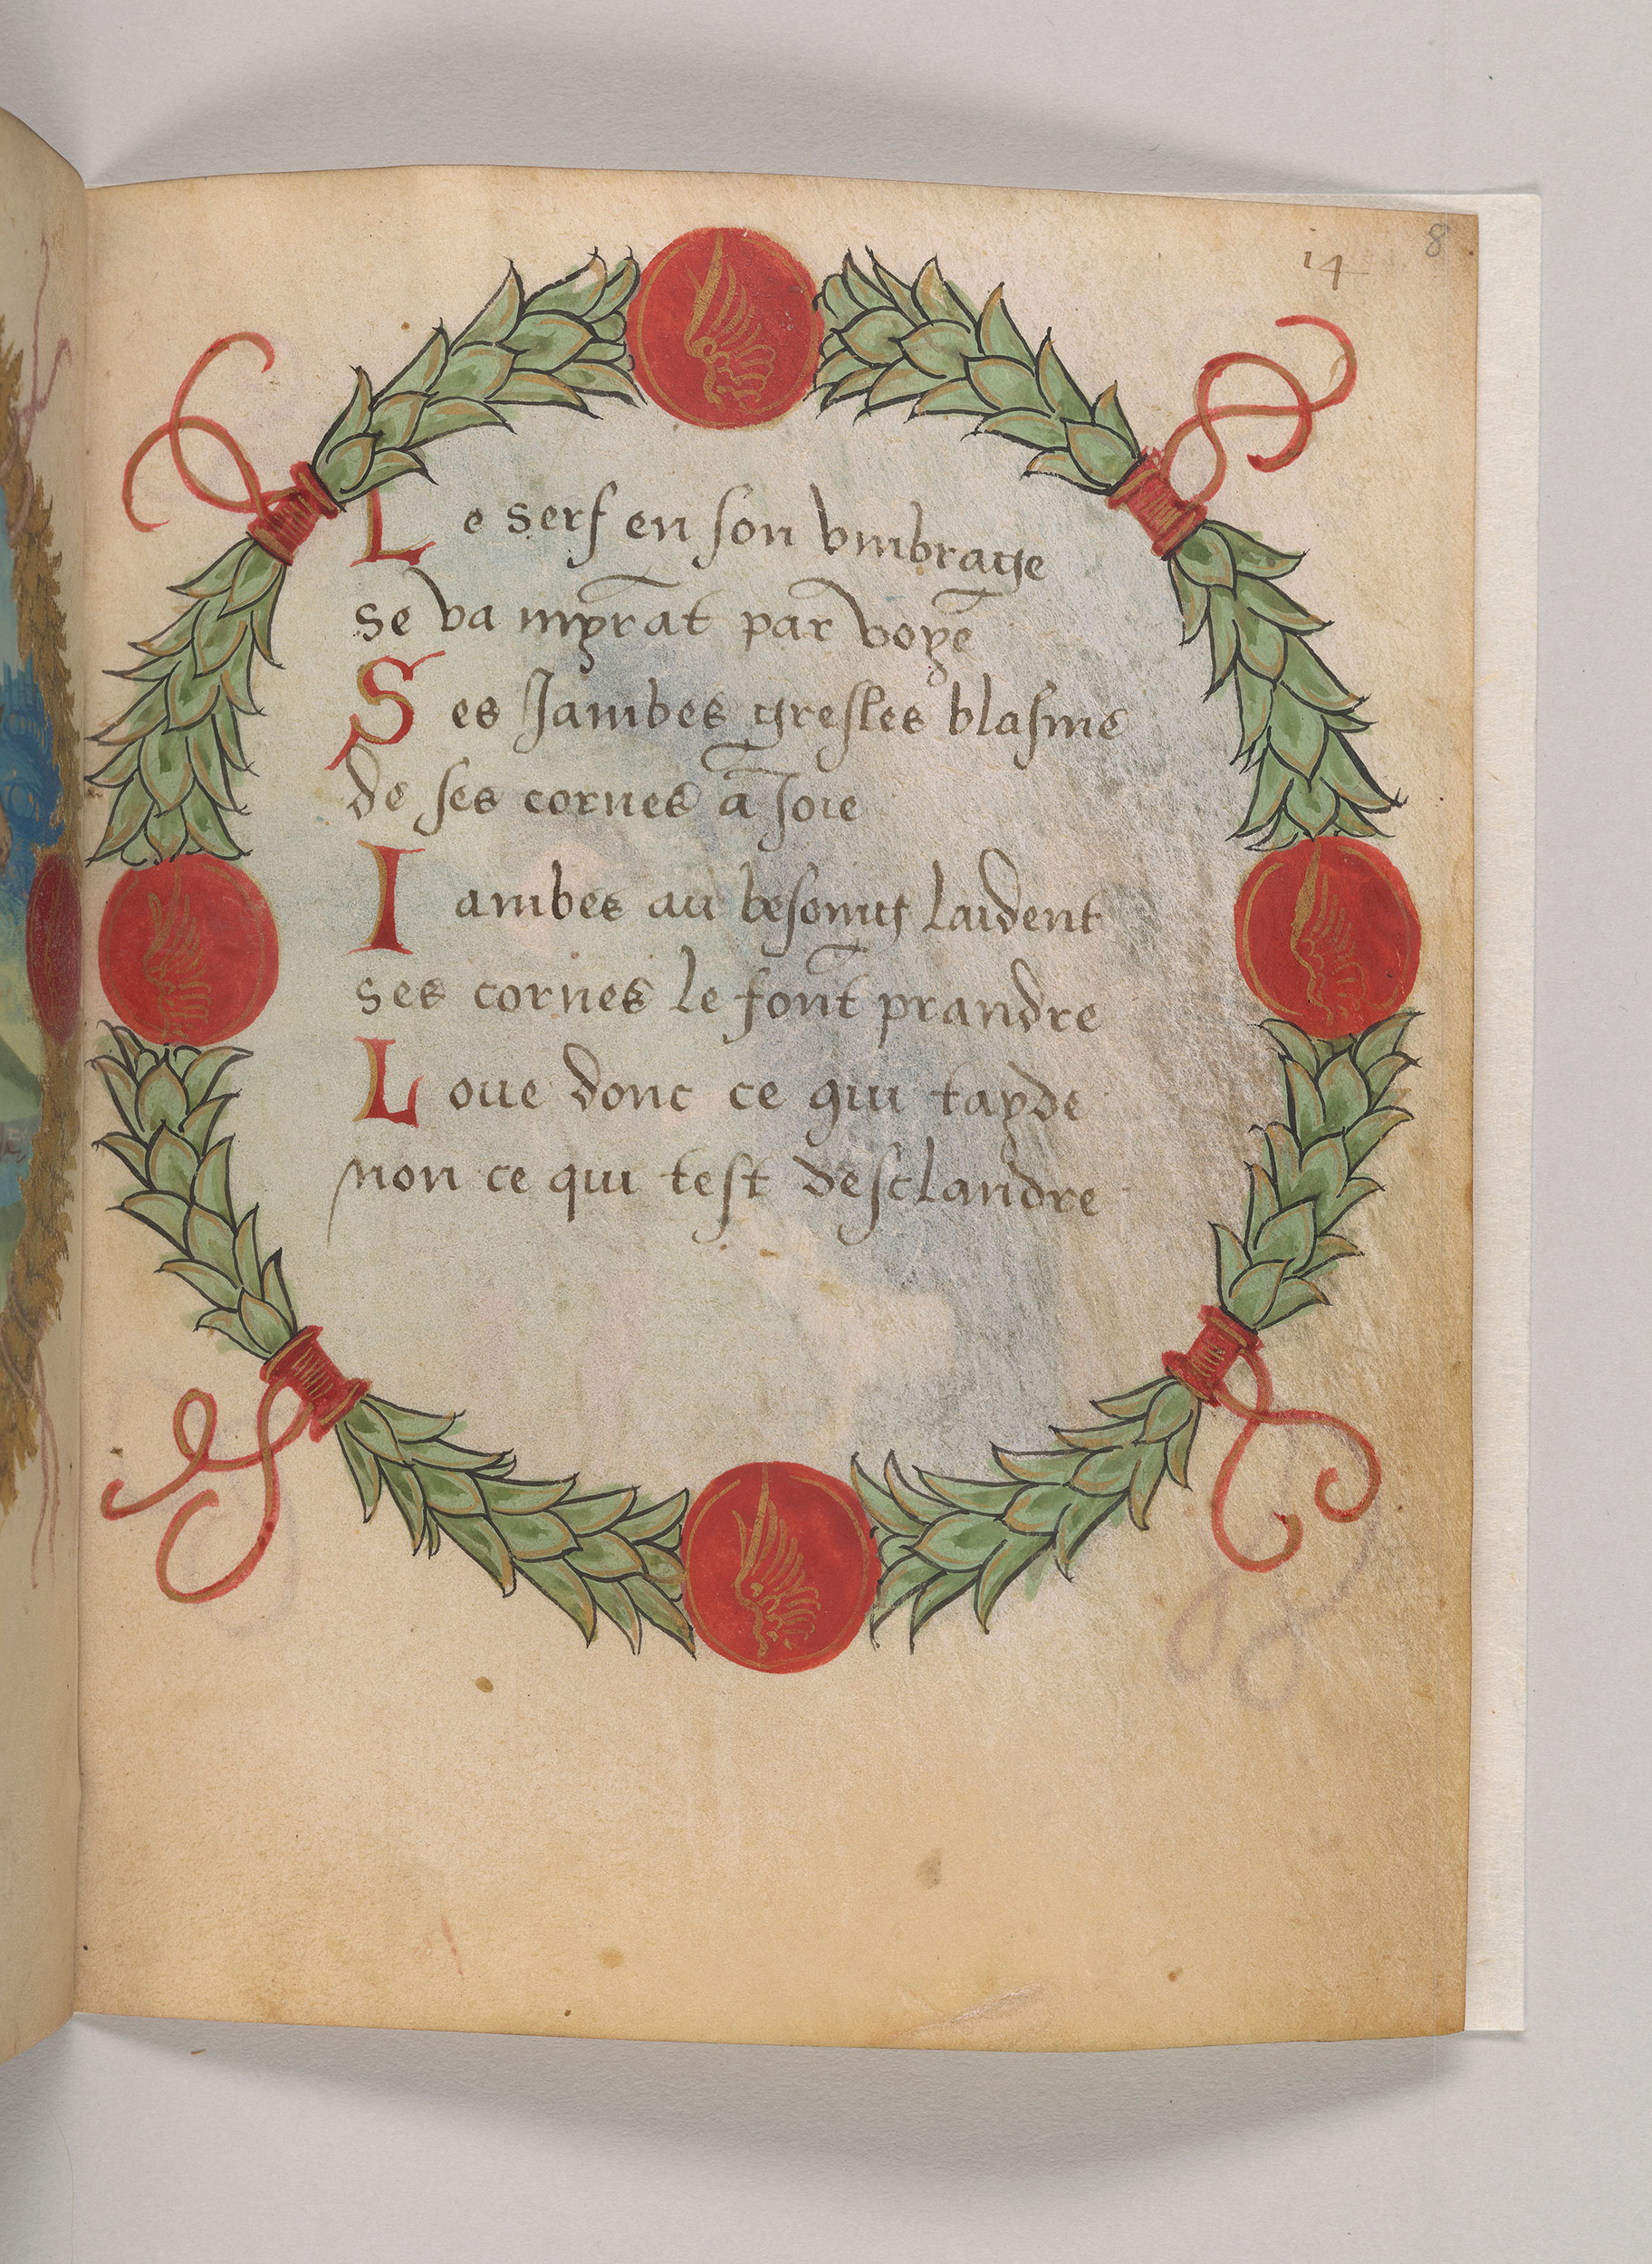 14 8
Le serf en son vmbrage
se va myrãt par voyẽ
Ses Jambes gresles blasme
de ses cornes ã Joie
Iambes au besoing laident
ses cornes le font prandre
Loue donc ce qui tayde
non ce qui test desclandre